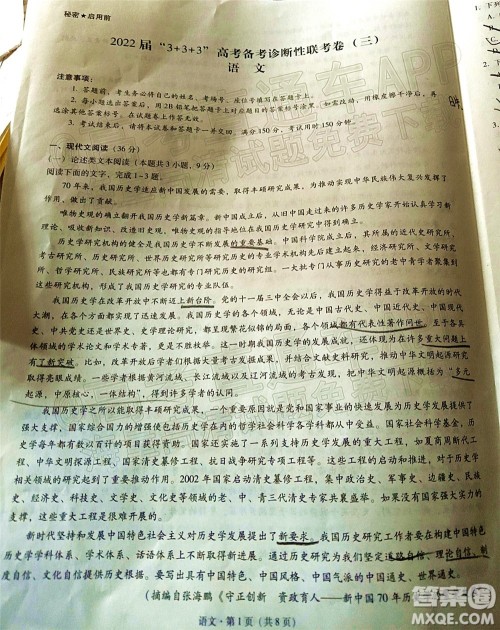 秘密★启用前
2022 届“3+3+3”高考备考诊断性联考卷（三）
语 文
注意事项：
1. 答题前，考生务必将自己的姓名、考场号、座位号填写在答题卡上。
2. 每小题选出答案后，用2B铅笔把答题卡上对应题目的答案标号涂黑。如需改动，用橡皮擦干净后，再
选涂其他答案标号。在试题卷上作答无效。
3. 考试结束后，请将本试卷和答题卡一并交回。满分150分，考试用时150分钟。
一、现代文阅读（36 分）
（一）论述类文本阅读（本题共 3 小题，9 分）
阅读下面的文字，完成 1~3 题。
70 年来，我国历史学适应新中国发展的需要，取得丰硕研究成果，为推动实现中华民族伟大复兴发挥了
作用。
唯物史观的确立翻开我国历史学新篇章。新中国成立后，从旧中国走来的许多历史学家开始认真学习
理论、吸收新知识、改造旧史观，唯物史观的指导地位在我国历史学研究中得到确立。
历史学研究机构的健全是我国历史学不断发展的重要基础。中国科学院成立后，其所属的近代史研究所、
考古研究所、历史研究所、世界历史研究所等研究历史的专业学术机构先后建立起来，经济研究所、文学研究
所、哲学研究所、民族研究所等也都有专门的研究历史的研究室。一大批专注于历史研究的老中青学者聚集到
这些研究机构，形成了我国历史学研究的专业队伍。
我国历史学在改革开放中不断迈上新台阶。党的十一届三中全会以后，我国历史学得益于改革开放的时代
大潮，在各个方面都得到发展。历史学的各个领域，无论是中国古代史、中国近代史、中国现代
史、中共党史还是世界史、史学理论研究，都呈现繁花似锦的局面，各个领域都有代表性著作问世，至于各具
体领域的学术论文和学术专著，更是不胜枚举。这一时期我国历史学的成就，还体现在许多重大问题上
有了新突破。比如，改革开放后学者们根据考古发掘成果，并结合文献史料研究，推动中华文明起源问题研究
取得亮眼成果。一些学者根据黄河流域、长江流域以及辽河流域的考古发现，把中华文明起源概括为“多元
起源，中原核心，一体结构”，得到许多学者的认同。
我国历史学之所以能取得丰硕研究成果，一个重要原因就是党和国家事业的快速发展为历史学发展提供了
强大支撑。国家综合国力的增强使包括历史学在内的哲学社会科学各学科都从中受益。我国国家社会科学基金，历
史学每年都有数以百计的项目获得资助。国家还实施了一系列支持历史学发展的重大工程，如夏商周断代工
程、中华文明探源工程、国家清史纂修工程、抗日战争研究专项工程等。这些工程的启动和推进，对于历史学
相关领域的研究起到了重大推动作用。2002 年国家启动清史纂修工程，集中政治史、军事史、边疆史、民族
史、经济史、科技史、文学史、文化史等领域的老、中、青三代清史专家共襄盛举。如果没有国家强大实力的
支撑，这些重大工程是很难开展的。
新时代坚持和发展中国特色社会主义对历史学发展提出了新要求。我国历史研究工作者要在构建中国特色
历史学学科体系、学术体系、话语体系上不断取得新进展。通过历史研究为我们坚定道路自信、理论自信、制
度自信、文化自信提供历史根据。要写出具有中国特色、中国风格、中国气派的中国通史、世界通史。
（摘编自张海鹏《守正创新 资政育人——新中国 70 年历
语文·第 1 页（共 8 页）
答案圈